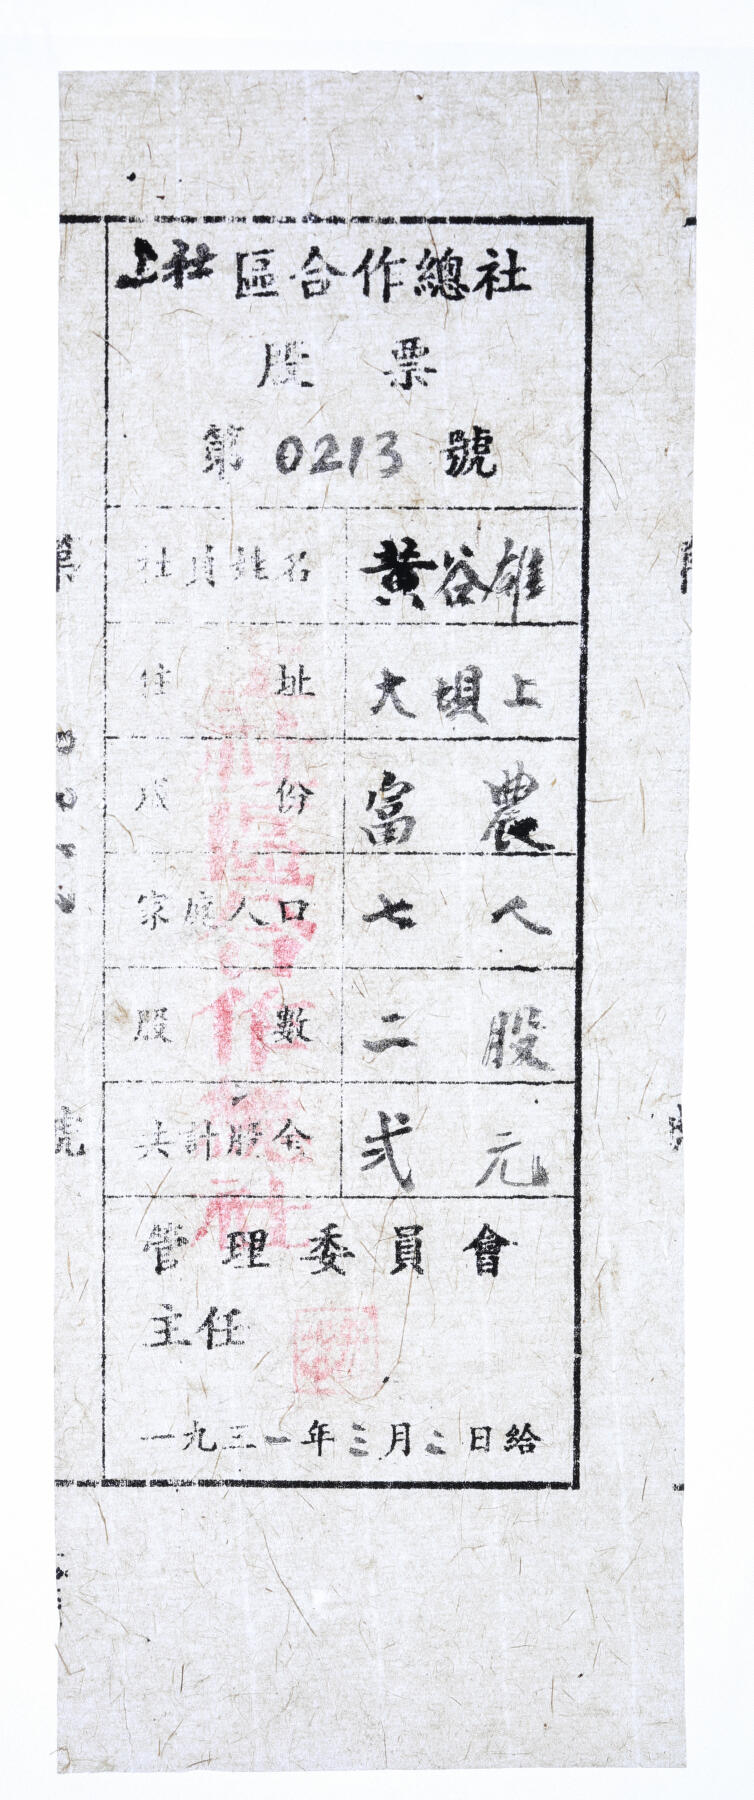 上社區合作總社
股票
第0213號
社員姓名 黄谷雄
住址 大垻上
成份 富農
家庭人口 七人
股數 二股
共計股金 弍元
管理委員會
主任
一九三一年三月二日給
社區合作總社